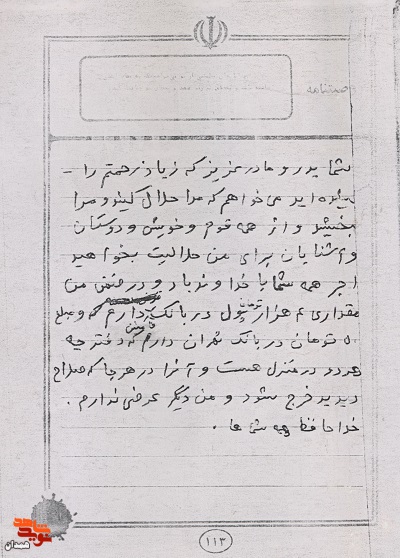 وصیتنامه
شما پدر و مادر عزیز که زیاد زحمتم را
کشیده اید می‌خواهم که مرا حلال کنید و مرا
ببخشید و از همه قوم و خویش و دوستان
و آشنایان برای من حلالیت بخواهید
اجر همه شما با خدا و در ضمن من
مقداری ۴ هزار تومان پول در بانک دارم که و مبلغ
۵۰ تومان در بانک تهران دارم که دفترچه
هردو در منزل هست و آنرا در هر جا که صلاح
دیدید خرج شود و من دیگر عرضی ندارم.
خدا حافظ همه شما.
۱۱۳
نوید شاهد
همدان